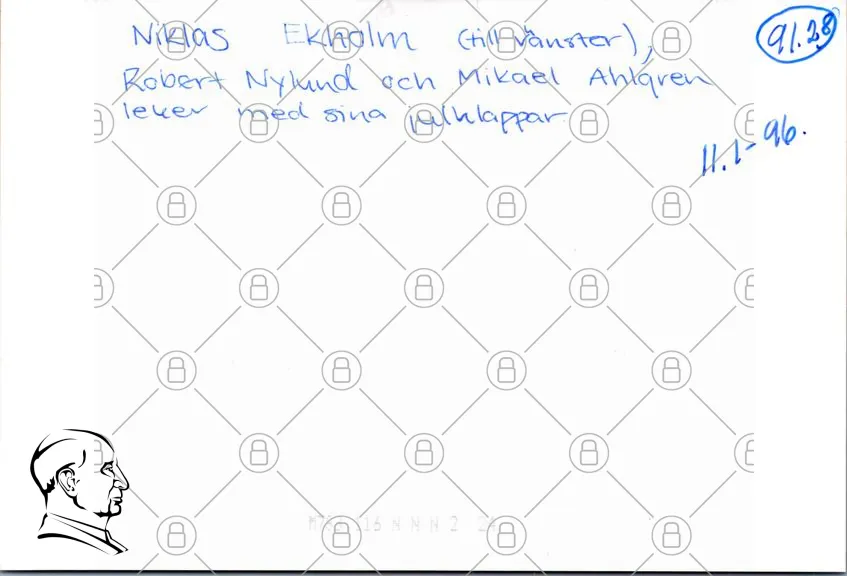 Niklas Ekholm (till vänster),
91.28
Robert Nylund och Mikael Ahlgren
leker med sina julklappar
11.1-96.
N N N 2